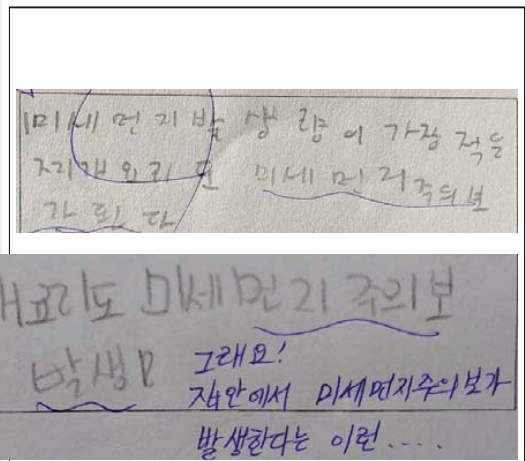 미세먼지발생량이 가장 적은
찌개요리도 미세먼지주의보
가 된다
개요리도 미세먼지 주의보
발생
그래요!
집안에서 미세먼지주의보가
발생한다는 이런....